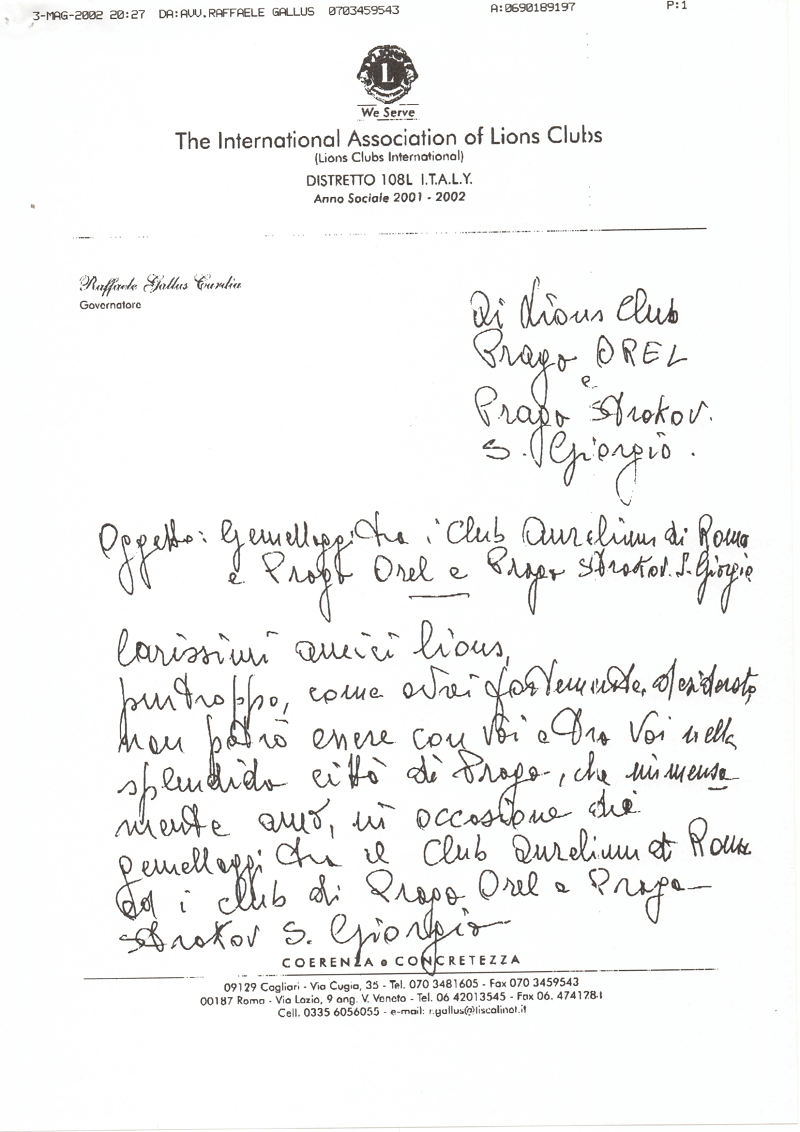 3-MAG-2002 20:27 DA:AVV.RAFFAELE GALLUS 0703459543 A:0690189197 P:1
LIONS
L
INTERNATIONAL
We Serve
The International Association of Lions Clubs
(Lions Clubs International)
DISTRETTO 108L I.T.A.L.Y.
Anno Sociale 2001 - 2002
Raffaele Gallus Cardia
Governatore
Ai Lions Club
Praga OREL
e
Praga Strokov.
S. Giorgio.
Oggetto: Gemellaggi tra i Club Aurelium di Roma
e Praga Orel e Praga Strokov. S. Giorgio
Carissimi amici lions,
purtroppo, come avrei fortemente desiderato,
non potrò essere con Voi e tra Voi nella
splendida città di Praga, che immensa
mente amo, in occasione dei
gemellaggi tra il Club Aurelium di Roma
ed i club di Praga Orel e Praga
Strokov S. Giorgio
COERENZA e CONCRETEZZA
09129 Cagliari - Via Cugia, 35 - Tel. 070 3481605 - Fax 070 3459543
00187 Roma - Via Lazio, 9 ang. V. Veneto - Tel. 06 42013545 - Fax 06. 4741284
Cell. 0335 6056055 - e-mail: r.gallus@liscalinet.it